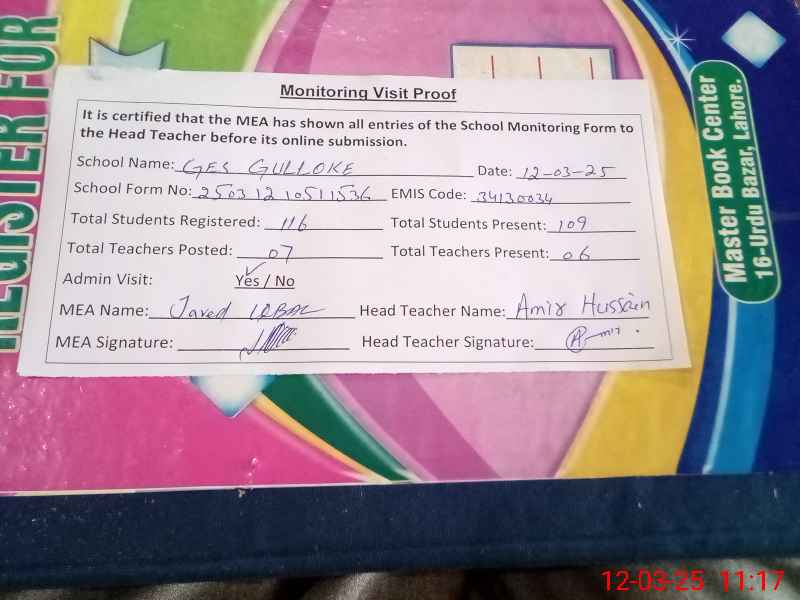 REGISTER FOR
Monitoring Visit Proof
It is certified that the MEA has shown all entries of the School Monitoring Form to
the Head Teacher before its online submission.
School Name: GES GULLOKE Date: 12-03-25
School Form No: 25031210511536 EMIS Code: 34130034
Total Students Registered: 116 Total Students Present: 109
Total Teachers Posted: 07 Total Teachers Present: 06
Admin Visit: Yes / No
MEA Name: Javed IQBAL Head Teacher Name: Amir Hussain
MEA Signature: Head Teacher Signature: Amir
Master Book Center
16-Urdu Bazar, Lahore.
12-03-25 11:17